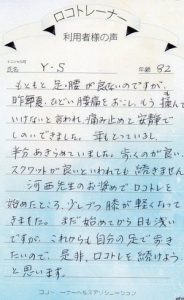 ロコトレーナー
利用者様の声
氏名 Y・S 年齢 82
もともと足・腰が良くないのですが、
昨年夏、ひどい腰痛をおこし、もう痛んで
いけないと言われ痛み止めと安静で
しのいできました。年もとっているし、
半分あきらめていました。歩くのが良い、
スクワットが良いといわれても続きません。
河西先生のお奨めでロコトレを
始めたところ、少しづつ腰が軽くなって
きました。まだ始めてから日も浅い
ですが、これからも自分の足で歩き
たいので、是非、ロコトレを続けよう
と思います。